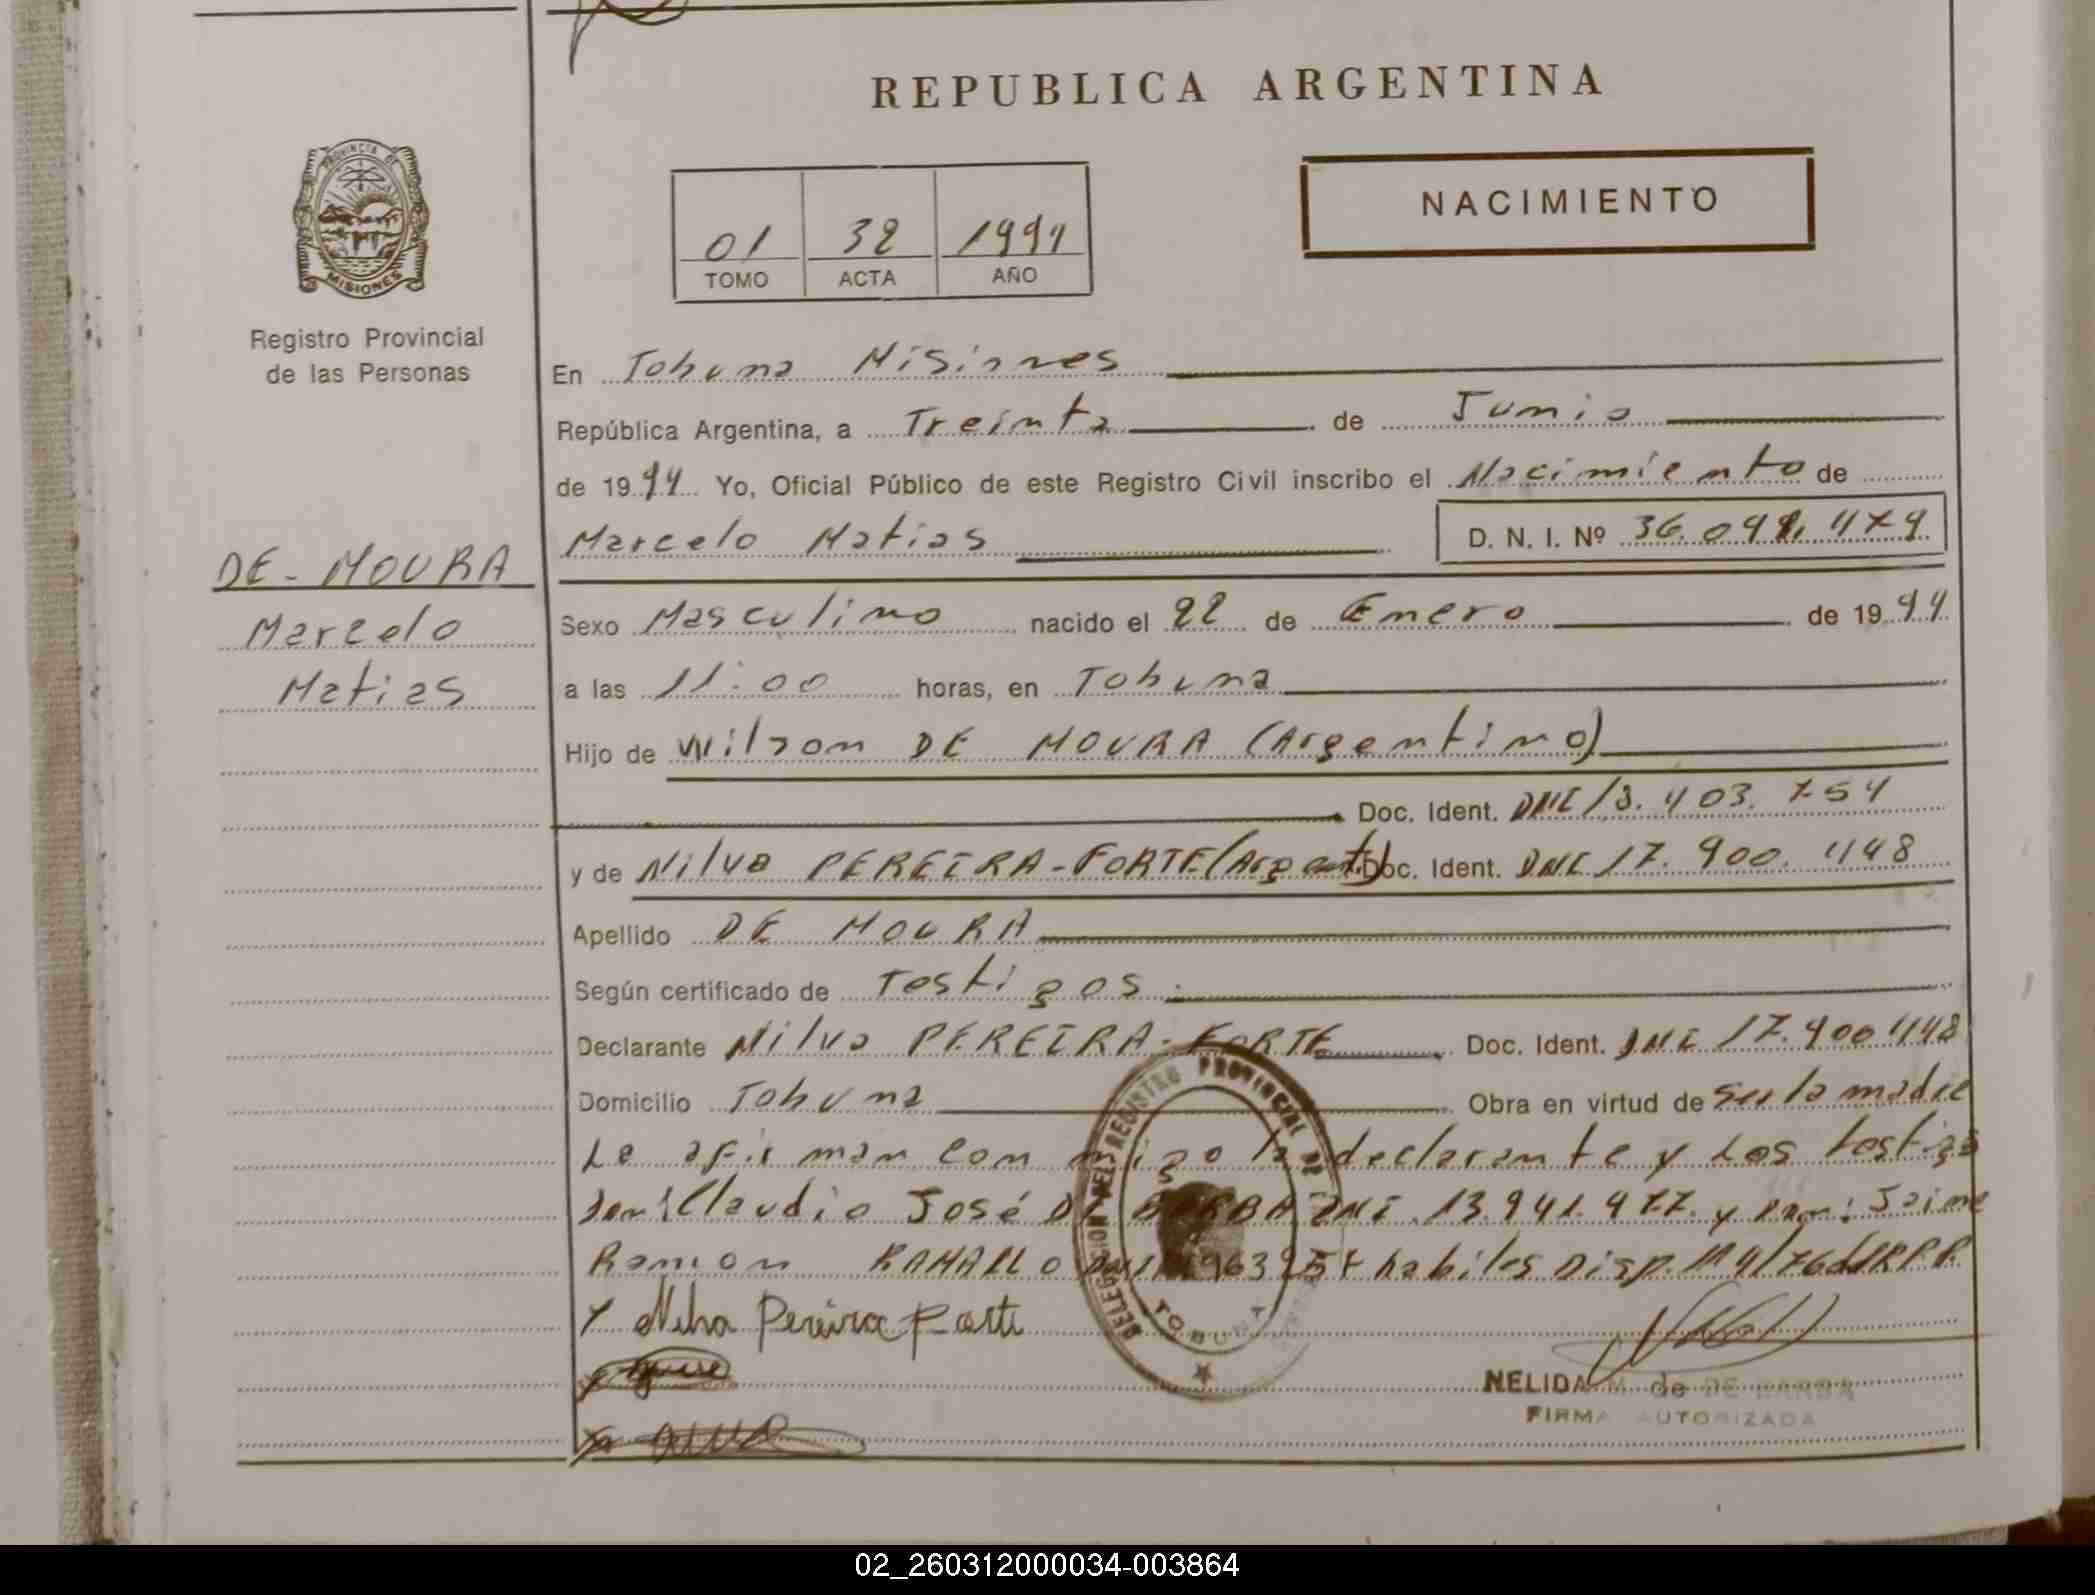 REPUBLICA ARGENTINA
PROVINCIA DE
MISIONES
Registro Provincial
de las Personas
NACIMIENTO
01 32
TOMO ACTA AÑO
En Tobuna Misiones
República Argentina, a Treinta de Junio
de 1994 Yo, Oficial Público de este Registro Civil inscribo el Nacimiento de
Marcelo Matias D. N. I. Nº
DE-MOURA
Marcelo
Matias
Sexo Masculino nacido el 22 de Enero de 1994
a las 11:00 horas, en Tobuna
Hijo de Wilson DE MOURA (Argentino)
Doc. Ident. DNI 13.403.754
y de Nilva PEREIRA-FORTE (Argent) Doc. Ident. DNI 17.900.448
Apellido DE MOURA
Según certificado de Testigos.
Declarante Nilva PEREIRA-FORTE Doc. Ident. DNI 17.900448
Domicilio Tobuna Obra en virtud de ser la madre
Lo afirman conmigo la declarante y los testigos
Don: Claudio José DE BARBA DNI 13.941.477. y Don: Jaime
Ramon RAMALLO habiles Disp.
Pereira Forti
DELEGACION REGISTRO PROVINCIAL DE
TOBUNA
NELIDA M. de DE BARBA
FIRMA AUTORIZADA
02_260312000034-003864